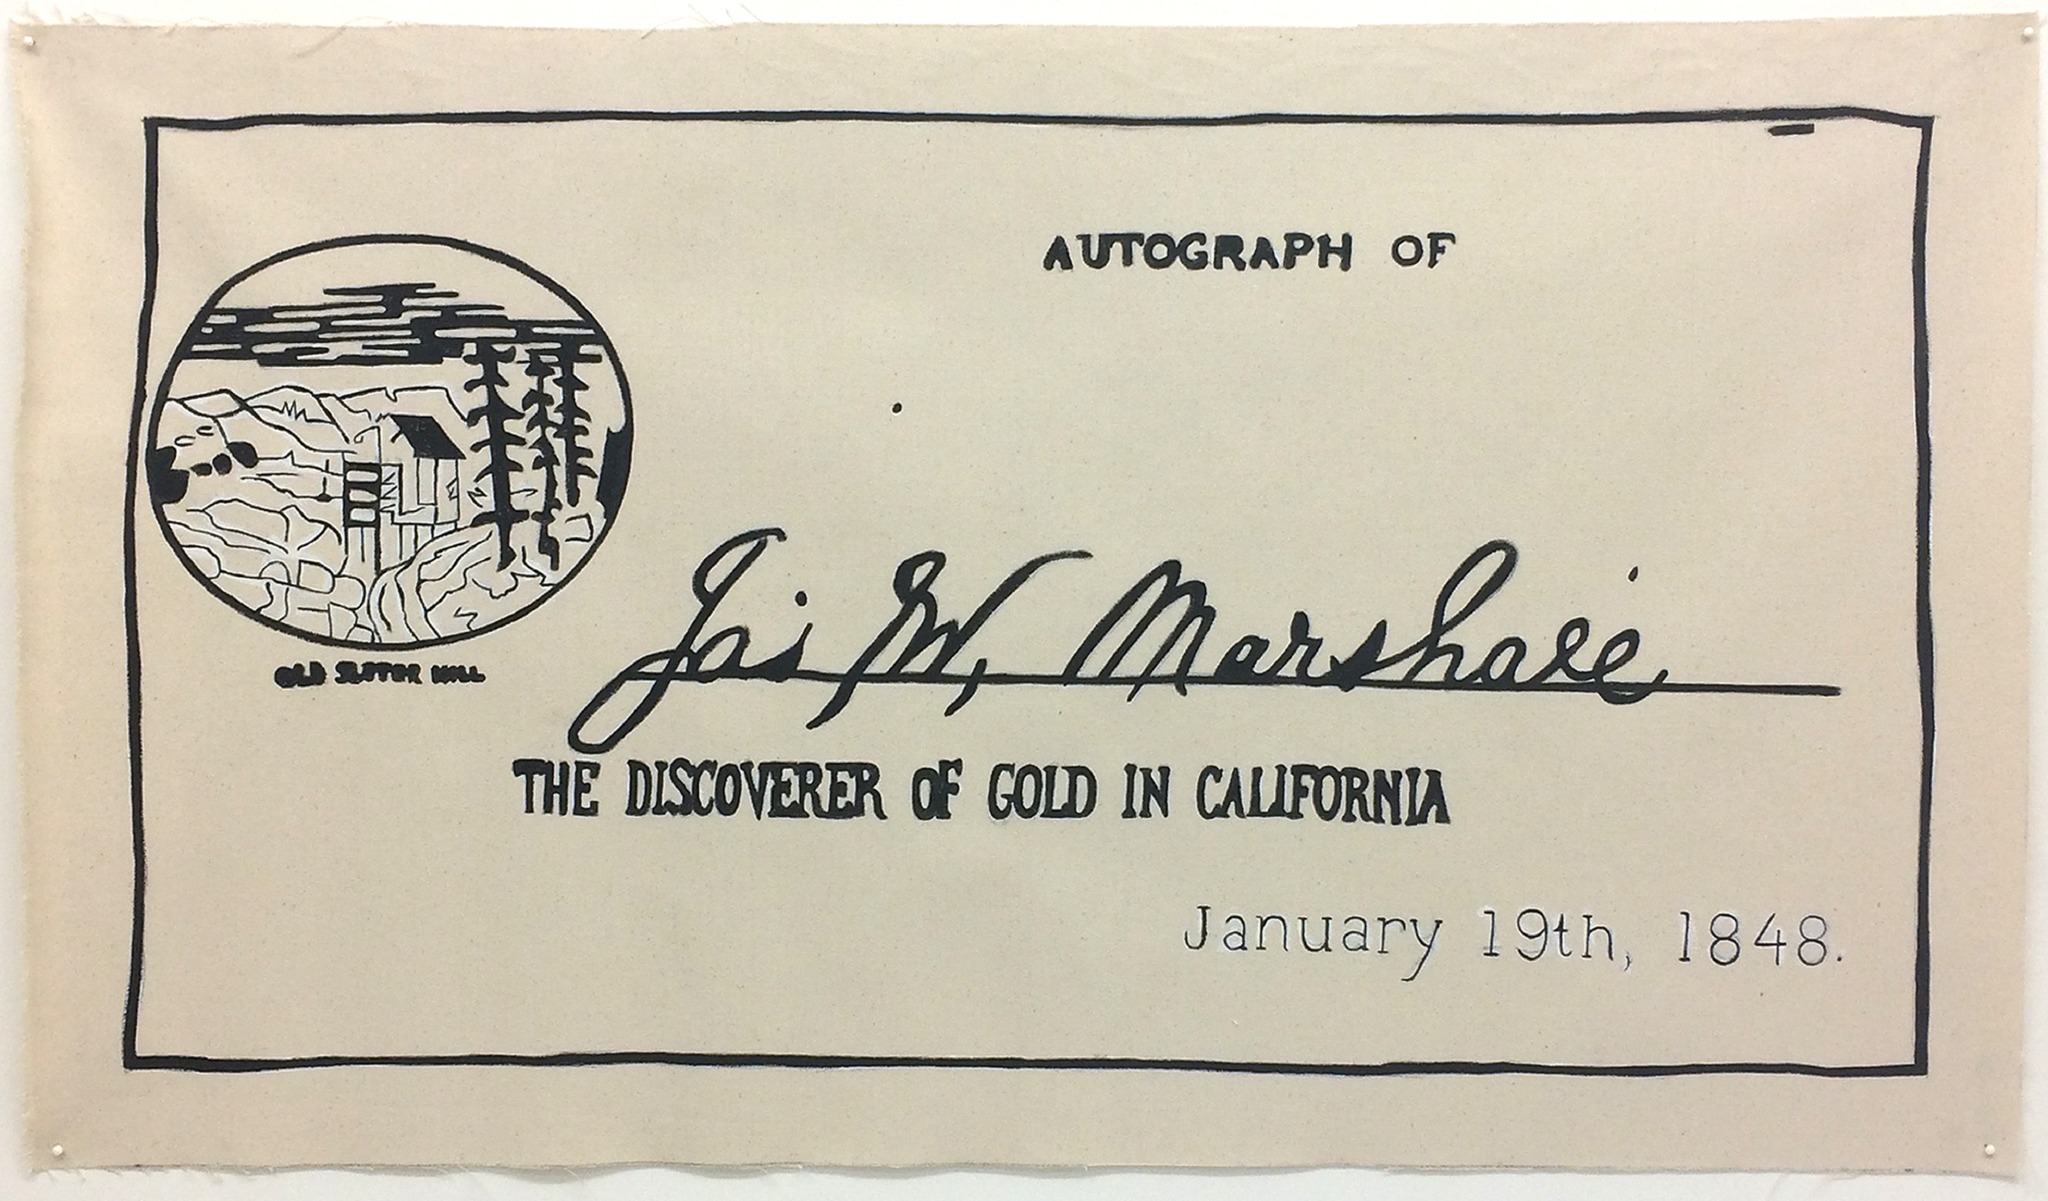 AUTOGRAPH OF
OLD SUTTER MILL
Jas W. Marshall
THE DISCOVERER OF GOLD IN CALIFORNIA
January 19th, 1848.